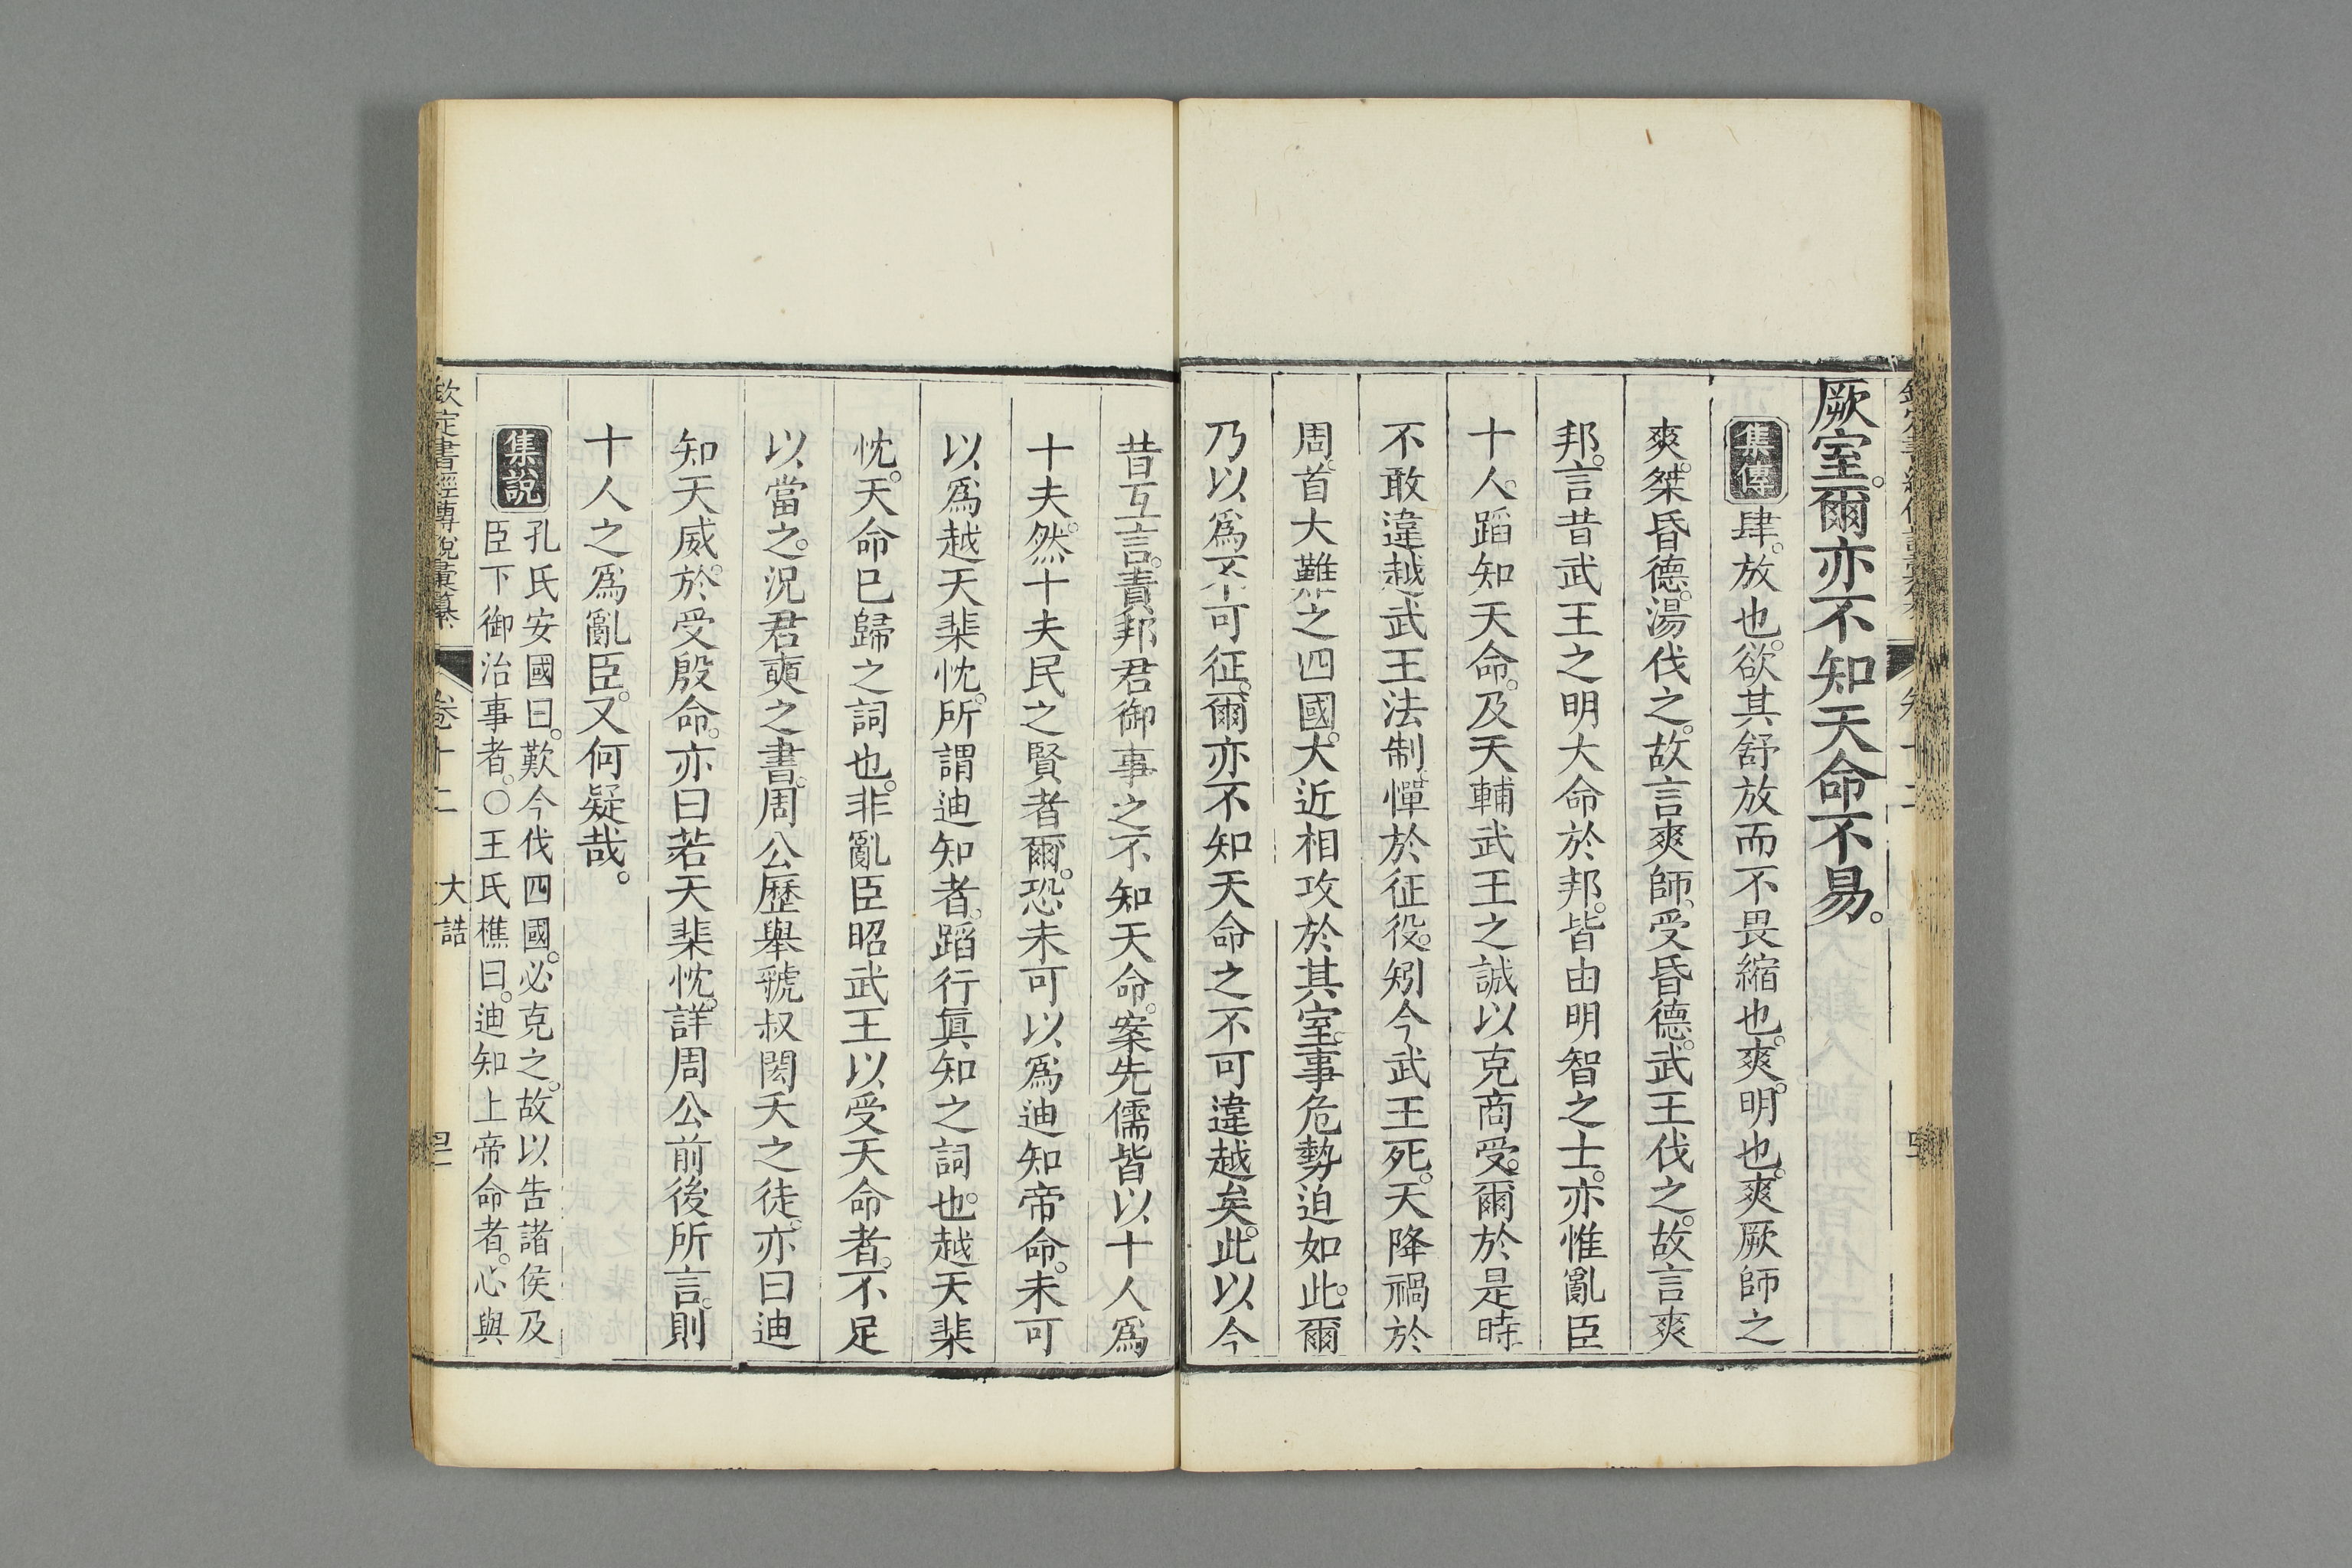 厥室爾亦不知天命不易
集傳 肆放也欲其舒放而不畏縮也爽明也爽厥師之
爽桀昏德湯伐之故言爽師受昏德武王伐之故言爽
邦言昔武王之明大命於邦皆由明智之士亦惟亂臣
十人蹈知天命及天輔武王之誠以克商受爾於是時
不敢違越武王法制憚於征役矧今武王死天降禍於
周首大難之四國大近相攻於其室事危勢迫如此爾
乃以爲不可征爾亦不知天命之不可違越矣此以今
昔互言責邦君御事之不知天命案先儒皆以十人爲
十夫然十夫民之賢者爾恐未可以爲迪知帝命未可
以爲越天棐忱所謂迪知者蹈行眞知之詞也越天棐
忱天命已歸之詞也非亂臣昭武王以受天命者不足
以當之況君奭之書周公歷舉虢叔閎夭之徒亦曰迪
知天威於受殷命亦曰若天棐忱詳周公前後所言則
十人之爲亂臣又何疑哉
集說 孔氏安國曰歎今伐四國必克之故以告諸侯及
臣下御治事者○王氏樵曰迪知上帝命者心與
欽定書經傳說彙纂 卷十二 大誥